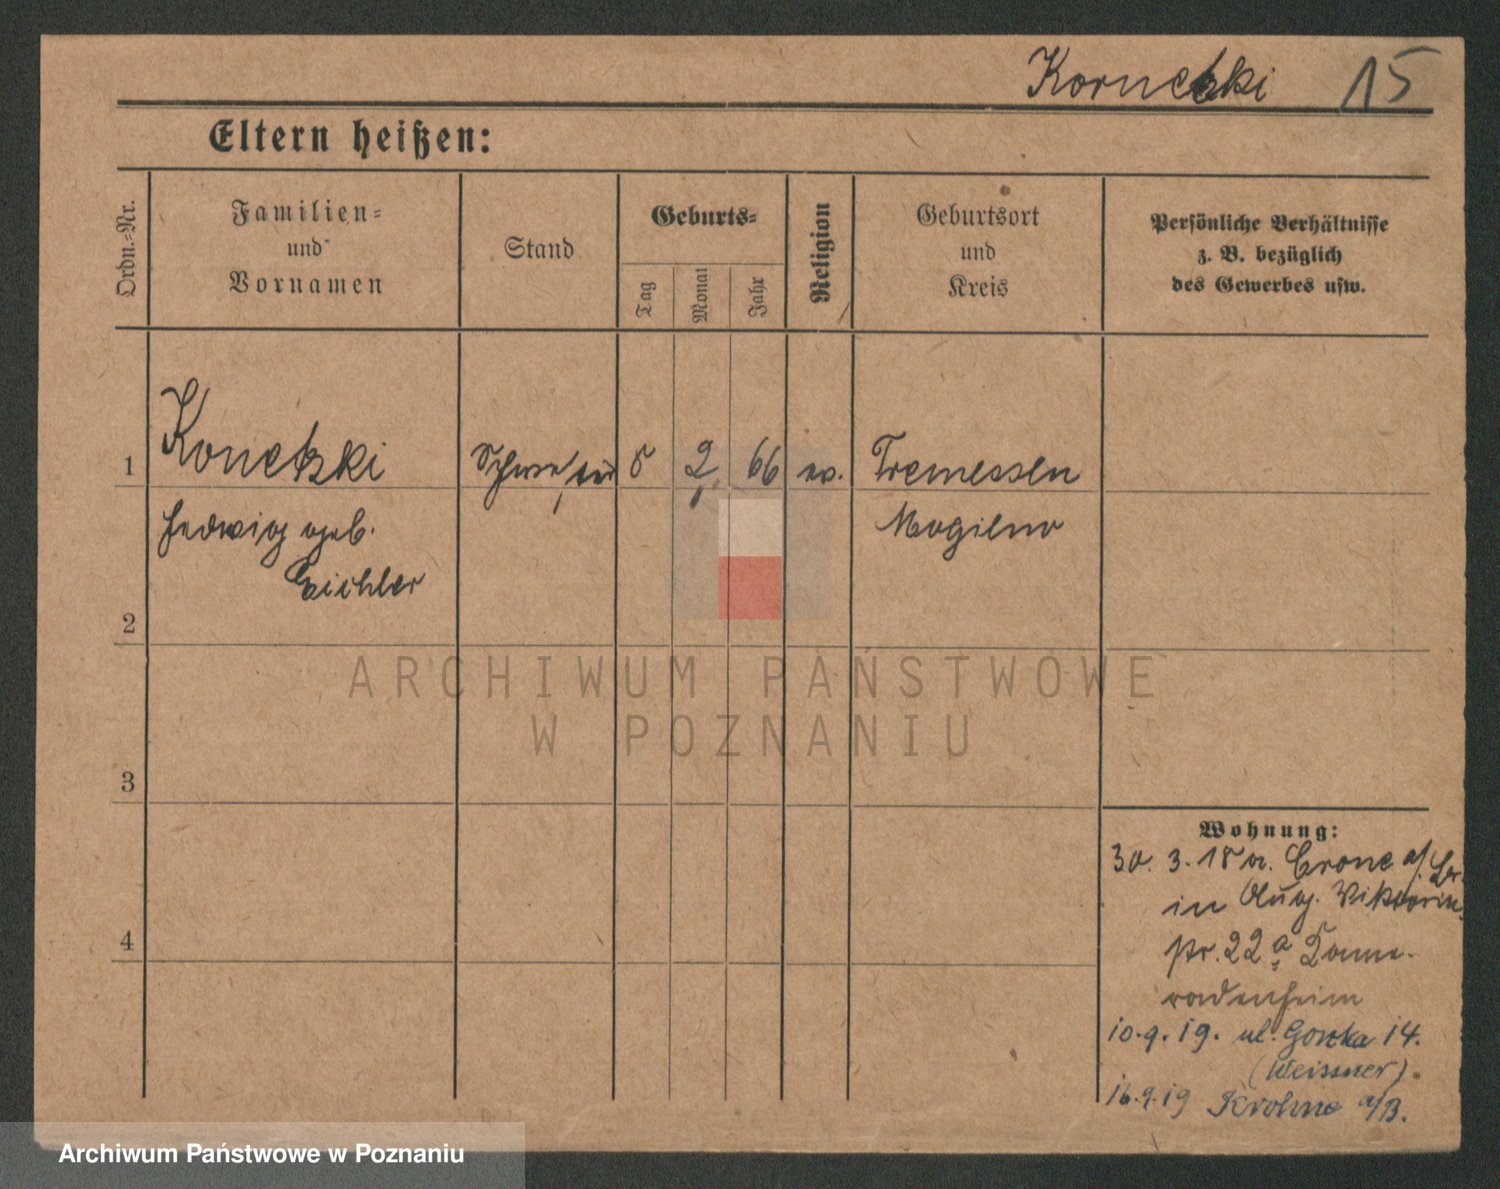 Kornetzki 15
Eltern heißen:
Ordn.-Nr.
Familien=
und
Vornamen
Stand
Geburts=
Tag
Monat
Jahr
Religion
Geburtsort
und
Kreis
Persönliche Verhältnisse
z. B. bezüglich
des Gewerbes usw.
1 Konetzki 5 2. 66 ev. Tremessen
Hedwig geb. Mogilno
Eichler
2
3
4
ARCHIWUM PAŃSTWOWE
W POZNANIU
Wohnung:
30. 3. 18 v. Crone a/ Br.
in Aug. Viktoria
str. 22 a Dame-
10.9.19. ul. Gorska 14.
(Weissner).
16.9.19 Krohne a/B.
Archiwum Państwowe w Poznaniu